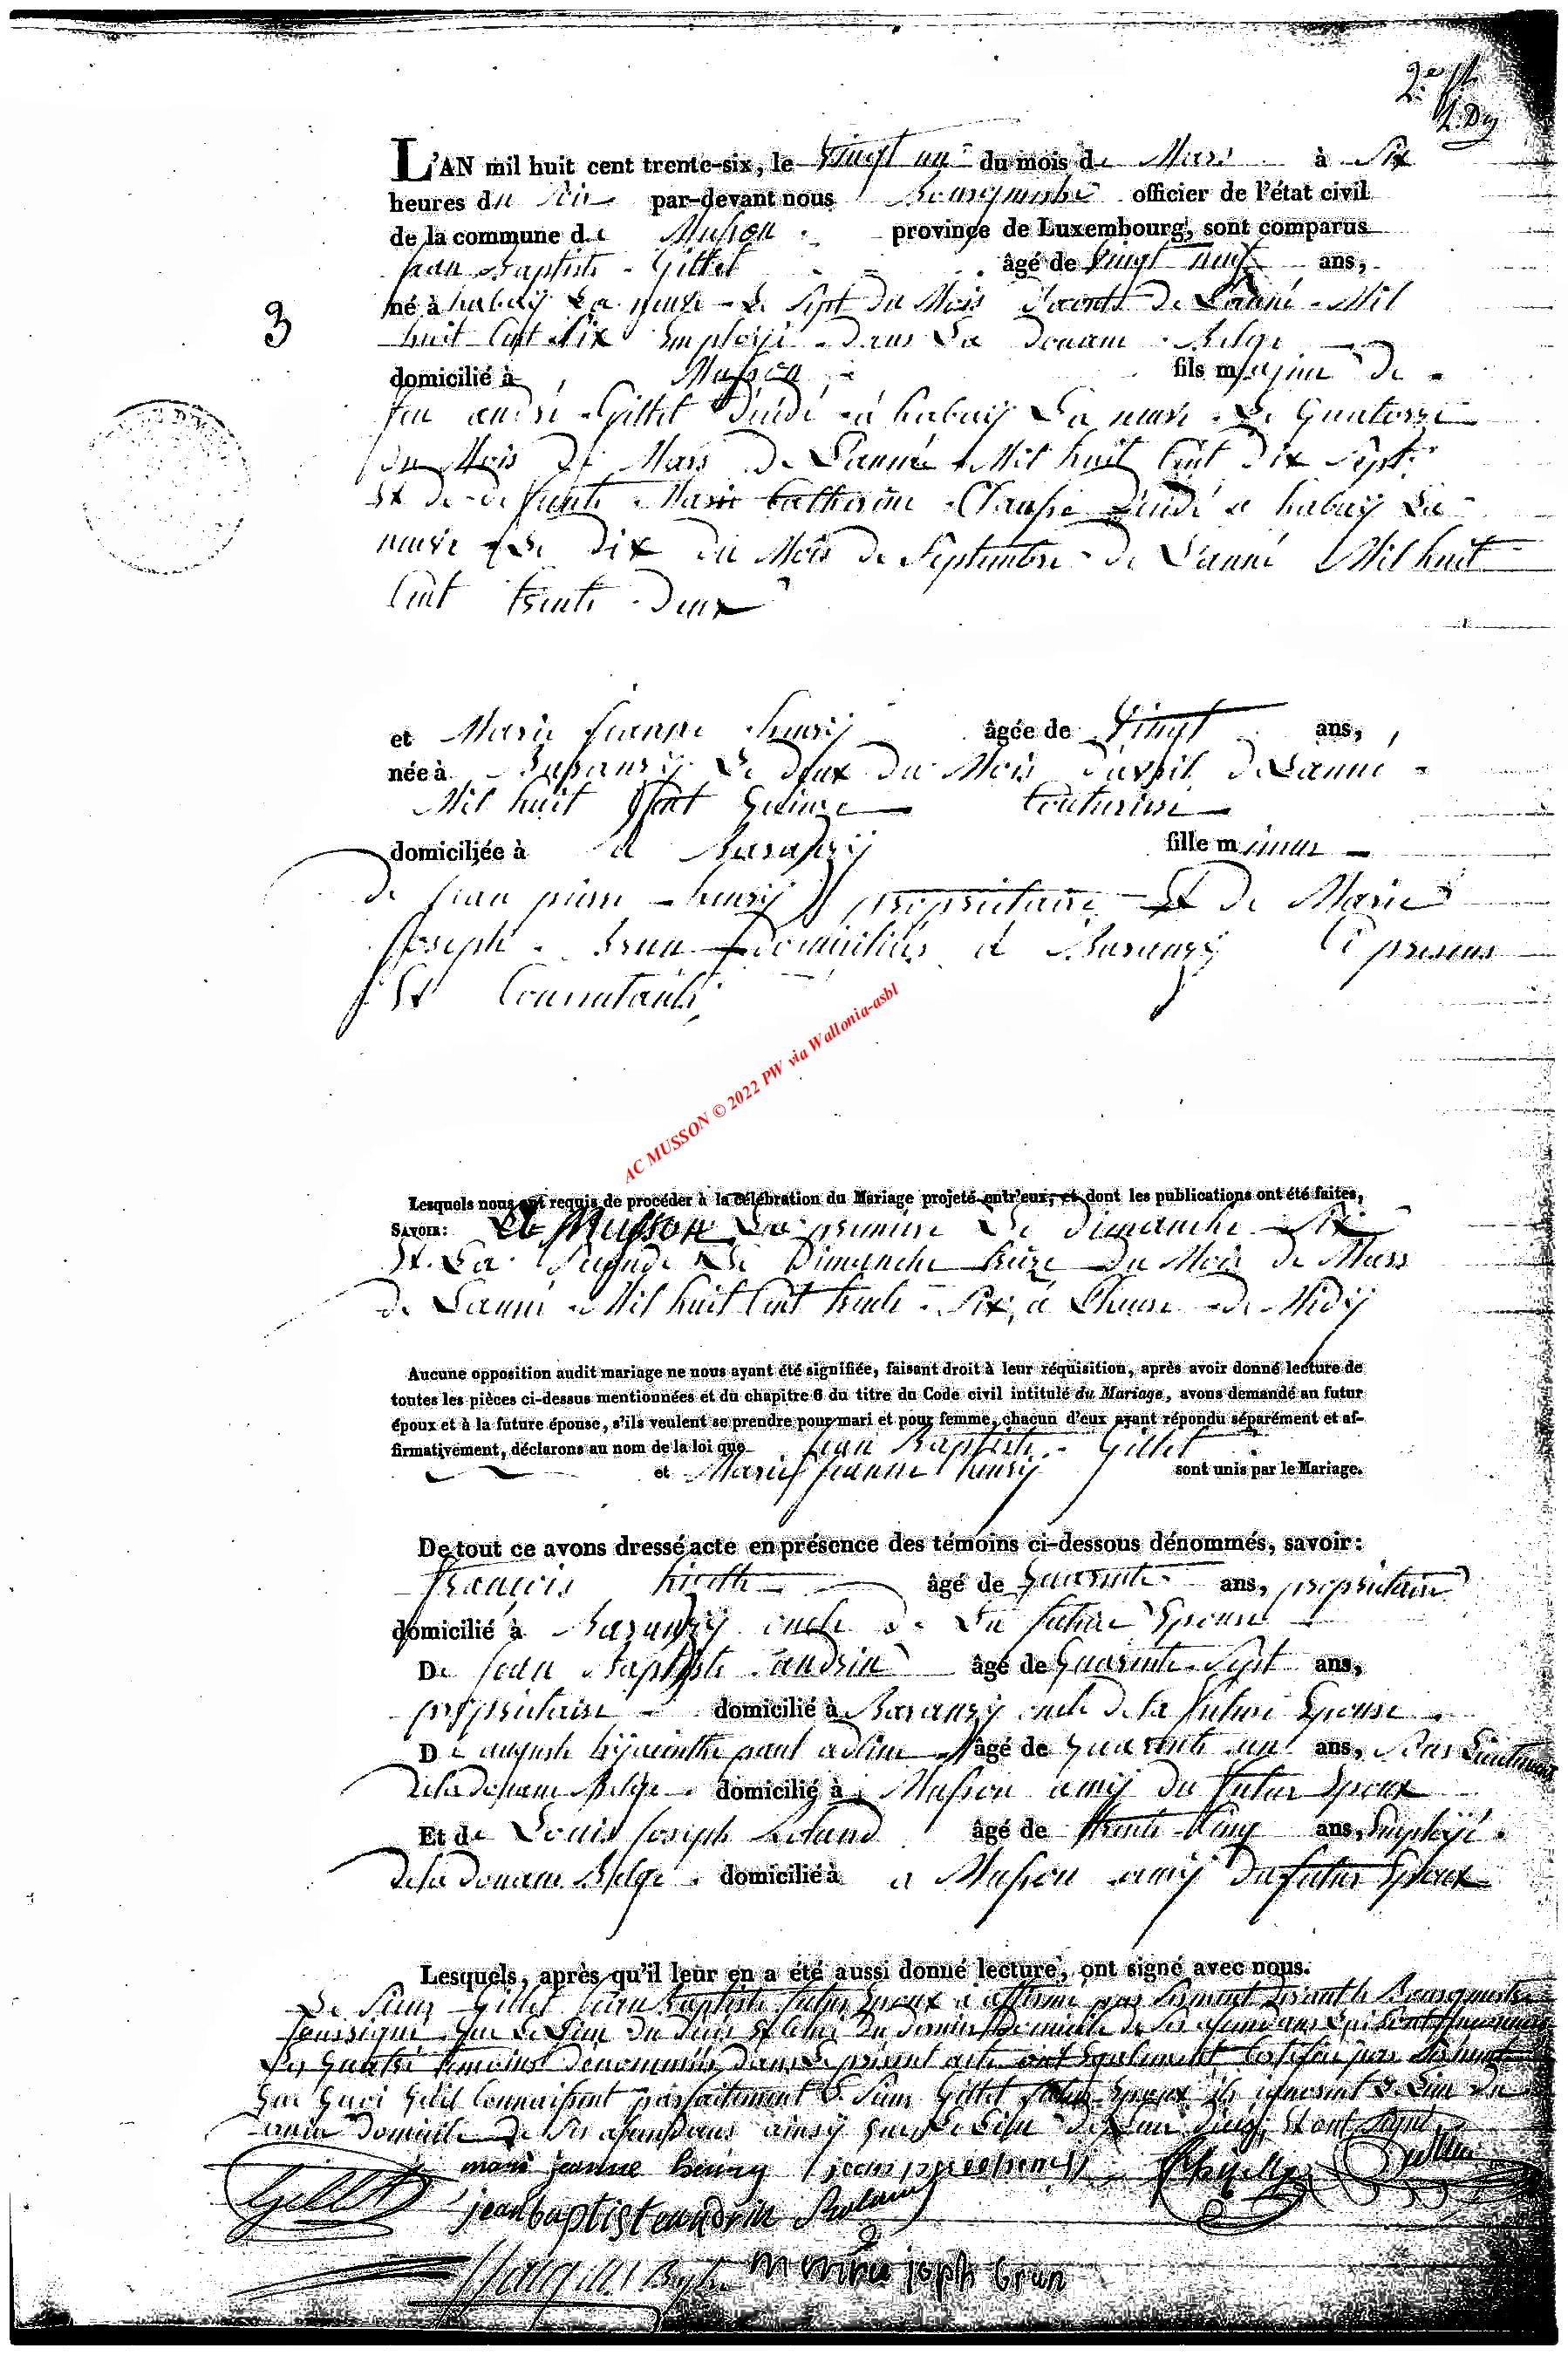 L'AN mil huit cent trente-six, le Vingt un du mois de Mars à Six
heures du soir par-devant nous Bourgmestre officier de l'état civil
de la commune de Musson province de Luxembourg, sont comparus
jean Baptiste Gillet âgé de Vingt neuf ans,
né à habaÿ La neuve Le Sept du Mois De L'anné Mil
huit Cent Six Employé dans La Douane Belge
3
domicilié à Musson fils majeur de
feu andré Gillet Dúdé á habaÿ La neuve Le Quatorze
du Mois de Mars De L'année Mil huit Cent dix Sept
Et de defunte Marie Catherine Claussé Dúdé a habaÿ La
neuve Le Dix du Mois de Septembre de L'anné Mil huit
Cent trente Deux
et Marie jeanne henrÿ âgée de Vingt ans,
née à Baranzÿ Le deux du Mois d'avril de L'anné
Mil huit Cent Quinze Couturiere
domiciliée à a Baranzÿ fille mineur
de jean pierre henrÿ propriétaire Et De Marie
joseph Brun Domiciliés à Baranzÿ Ci presens
Et Consentants
AC MUSSON © 2022 PW via Wallonia-asbl
Lesquels nous ont requis de procéder à la célébration du Mariage projeté entr'eux, et dont les publications ont été faites,
SAVOIR: A Musson La premiere Le Dimanche Six
Et La Seconde Le Dimanche treize du Mois de Mars
de L'anné Mil huit Cent trente Six, á L'heure de Midÿ
Aucune opposition audit mariage ne nous ayant été signifiée, faisant droit à leur réquisition, après avoir donné lecture de
toutes les pièces ci-dessus mentionnées et du chapitre 6 du titre du Code civil intitulé du Mariage, avons demandé au futur
époux et à la future épouse, s'ils veulent se prendre pour mari et pour femme, chacun d'eux ayant répondu séparément et af-
firmativement, déclarons au nom de la loi que jean Baptiste Gillet
et Marie jeanne henrÿ sont unis par le Mariage.
De tout ce avons dressé acte en présence des témoins ci-dessous dénommés, savoir:
françois âgé de Quarente ans, propriétaire
domicilié à Baranzÿ oncle de La future Epouse
De jean Baptiste andrin âgé de Quarente Sept ans,
propriétaire domicilié à Baranzÿ oncle de la future Epouse
De auguste hÿacinthe paul âgé de Quarente un ans, Sous Lieutenant
de la douane Belge domicilié à Musson amÿ du futur Epoux
Et de Louis joseph Roland âgé de trente Cinq ans, Employé
de la douane Belge domicilié à a Musson amÿ du futur Epoux
Lesquels, après qu'il leur en a été aussi donné lecture, ont signé avec nous.
Le Sieur Gillet jean Baptiste futur Epoux a affirmé par Serment devant le Bourgmestre
Soussigné que Le Lieu du décès et Celui du dernier Domicile de Ses
Les quatre temoins dénommés dans Le présent acte ont Egalement Certifié par Serment
que quoi qu'il Connaissent parfaitement Le Sieur Gillet futur Epoux ils ignorent Le Lieu du
dernier Domicile de Ses ainsÿ que Le Lieu de Leur décès, Et ont Signé
Gillet marie jeanne henrÿ
jean baptiste andrin Roland
marie joseph brun